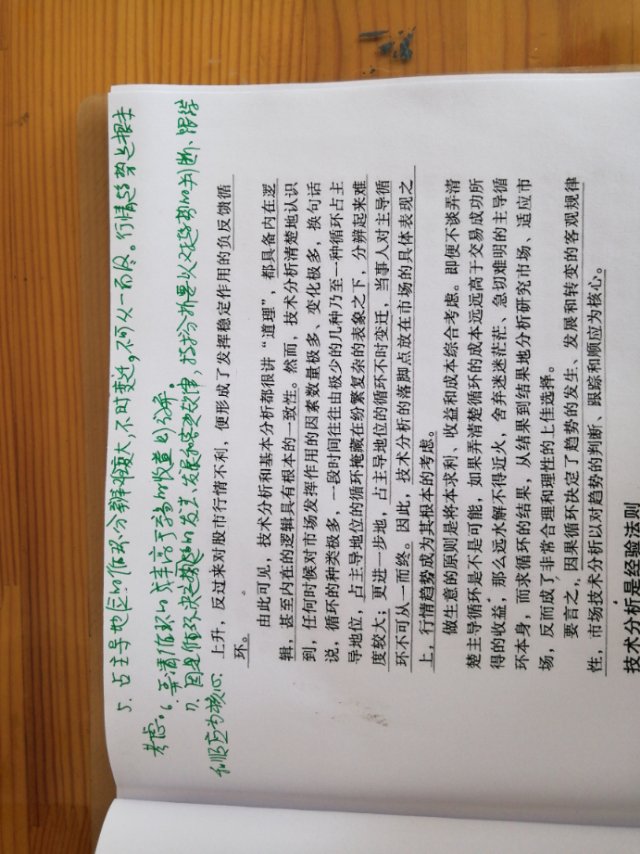 5. 占主导地位的循环分辨难度大，不时变迁，不可从一而终。行情趋势是根本
考虑。6. 弄清循环的成本高于交易的收益的分辨。
7. 因果循环决定趋势的发生、发展和客观规律，技术分析要以对趋势的判断、跟踪
和顺应为核心
上升，反过来对股市行情不利，便形成了发挥稳定作用的负反馈循
环。
由此可见，技术分析和基本分析都很讲“道理”，都具备内在逻
辑，甚至内在的逻辑具有根本的一致性。然而，技术分析清楚地认识
到，任何时候对市场发挥作用的因素数量极多、变化极多，换句话
说，循环的种类极多，一段时间往往由极少的几种乃至一种循环占主
导地位，占主导地位的循环掩藏在纷繁复杂的表象之下，分辨起来难
度较大；更进一步地，占主导地位的循环不时变迁，当事人对主导循
环不可从一而终。因此，技术分析的落脚点放在市场的具体表现之
上，行情趋势成为其根本的考虑。
做生意的原则是将本求利、收益和成本综合考虑。即便不谈弄清
楚主导循环是不是可能，如果弄清楚循环的成本远远高于交易成功所
得的收益，那么远水解不得近火，舍弃迷迷茫茫、急切难明的主导循
环本身，而求循环的结果，从结果到结果地分析研究市场、适应市
场，反而成了非常合理和理性的上佳选择。
要言之，因果循环决定了趋势的发生、发展和转变的客观规律
性，市场技术分析以对趋势的判断、跟踪和顺应为核心。
技术分析是经验法则